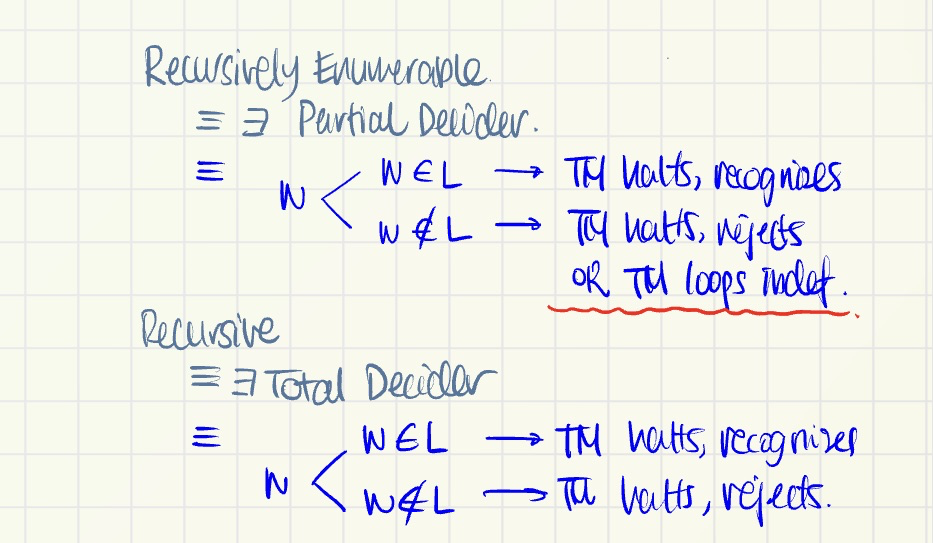 Recursively Enumerable.
≡ ∃ Partial Decider.
≡ W < W ∈ L → TM halts, recognizes
W ∉ L → TM halts, rejects
OR TM loops indef.
Recursive
≡ ∃ Total Decider
≡ W < W ∈ L → TM halts, recognizes
W ∉ L → TM halts, rejects.